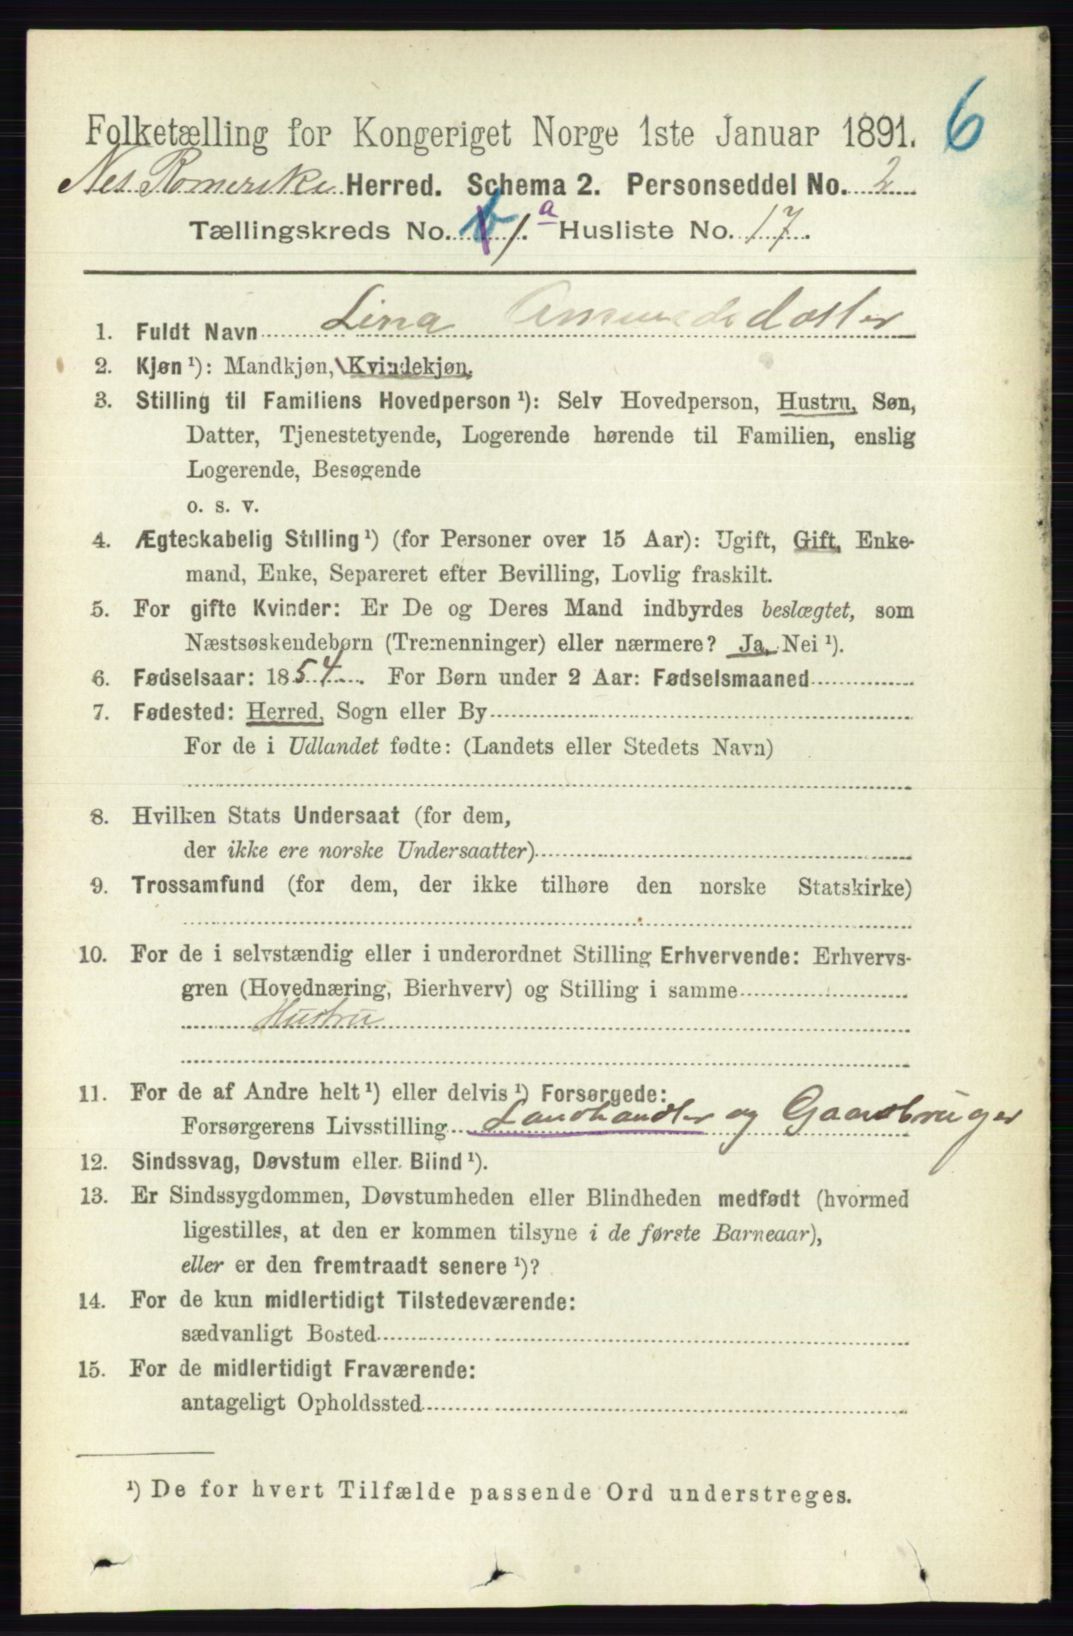 6
Folketælling for Kongeriget Norge 1ste Januar 1891.
Nes Romerike Herred. Schema 2. Personseddel No. 2
Tællingskreds No. 1.a Husliste No. 17.
1. Fuldt Navn Lina Amundsdatter
2. Kjøn ¹): Mandkjøn, Kvindekjøn.
3. Stilling til Familiens Hovedperson ¹): Selv Hovedperson, Hustru, Søn,
Datter, Tjenestetyende, Logerende hørende til Familien, enslig
Logerende, Besøgende
o. s. v.
4. Ægteskabelig Stilling ¹) (for Personer over 15 Aar): Ugift, Gift, Enke-
mand, Enke, Separeret efter Bevilling, Lovlig fraskilt.
5. For gifte Kvinder: Er De og Deres Mand indbyrdes beslægtet, som
Næstsøskendebørn (Tremenninger) eller nærmere? Ja, Nei ¹).
6. Fødselsaar: 1854. For Børn under 2 Aar: Fødselsmaaned
7. Fødested: Herred, Sogn eller By
For de i Udlandet fødte: (Landets eller Stedets Navn)
8. Hvilken Stats Undersaat (for dem,
der ikke ere norske Undersaatter)
9. Trossamfund (for dem, der ikke tilhøre den norske Statskirke)
10. For de i selvstændig eller i underordnet Stilling Erhvervende: Erhvervs-
gren (Hovednæring, Bierhverv) og Stilling i samme
Hustru
11. For de af Andre helt ¹) eller delvis ¹) Forsørgede:
Forsørgerens Livsstilling Landhandler og Gaardbruger
12. Sindssvag, Døvstum eller Blind ¹).
13. Er Sindssygdommen, Døvstumheden eller Blindheden medfødt (hvormed
ligestilles, at den er kommen tilsyne i de første Barneaar),
eller er den fremtraadt senere ¹)?
14. For de kun midlertidigt Tilstedeværende:
sædvanligt Bosted
15. For de midlertidigt Fraværende:
antageligt Opholdssted
¹) De for hvert Tilfælde passende Ord understreges.